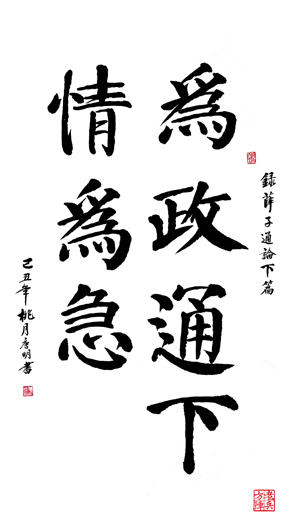 録薛子通論下篇
爲政通下
情爲急
己丑年桃月明書